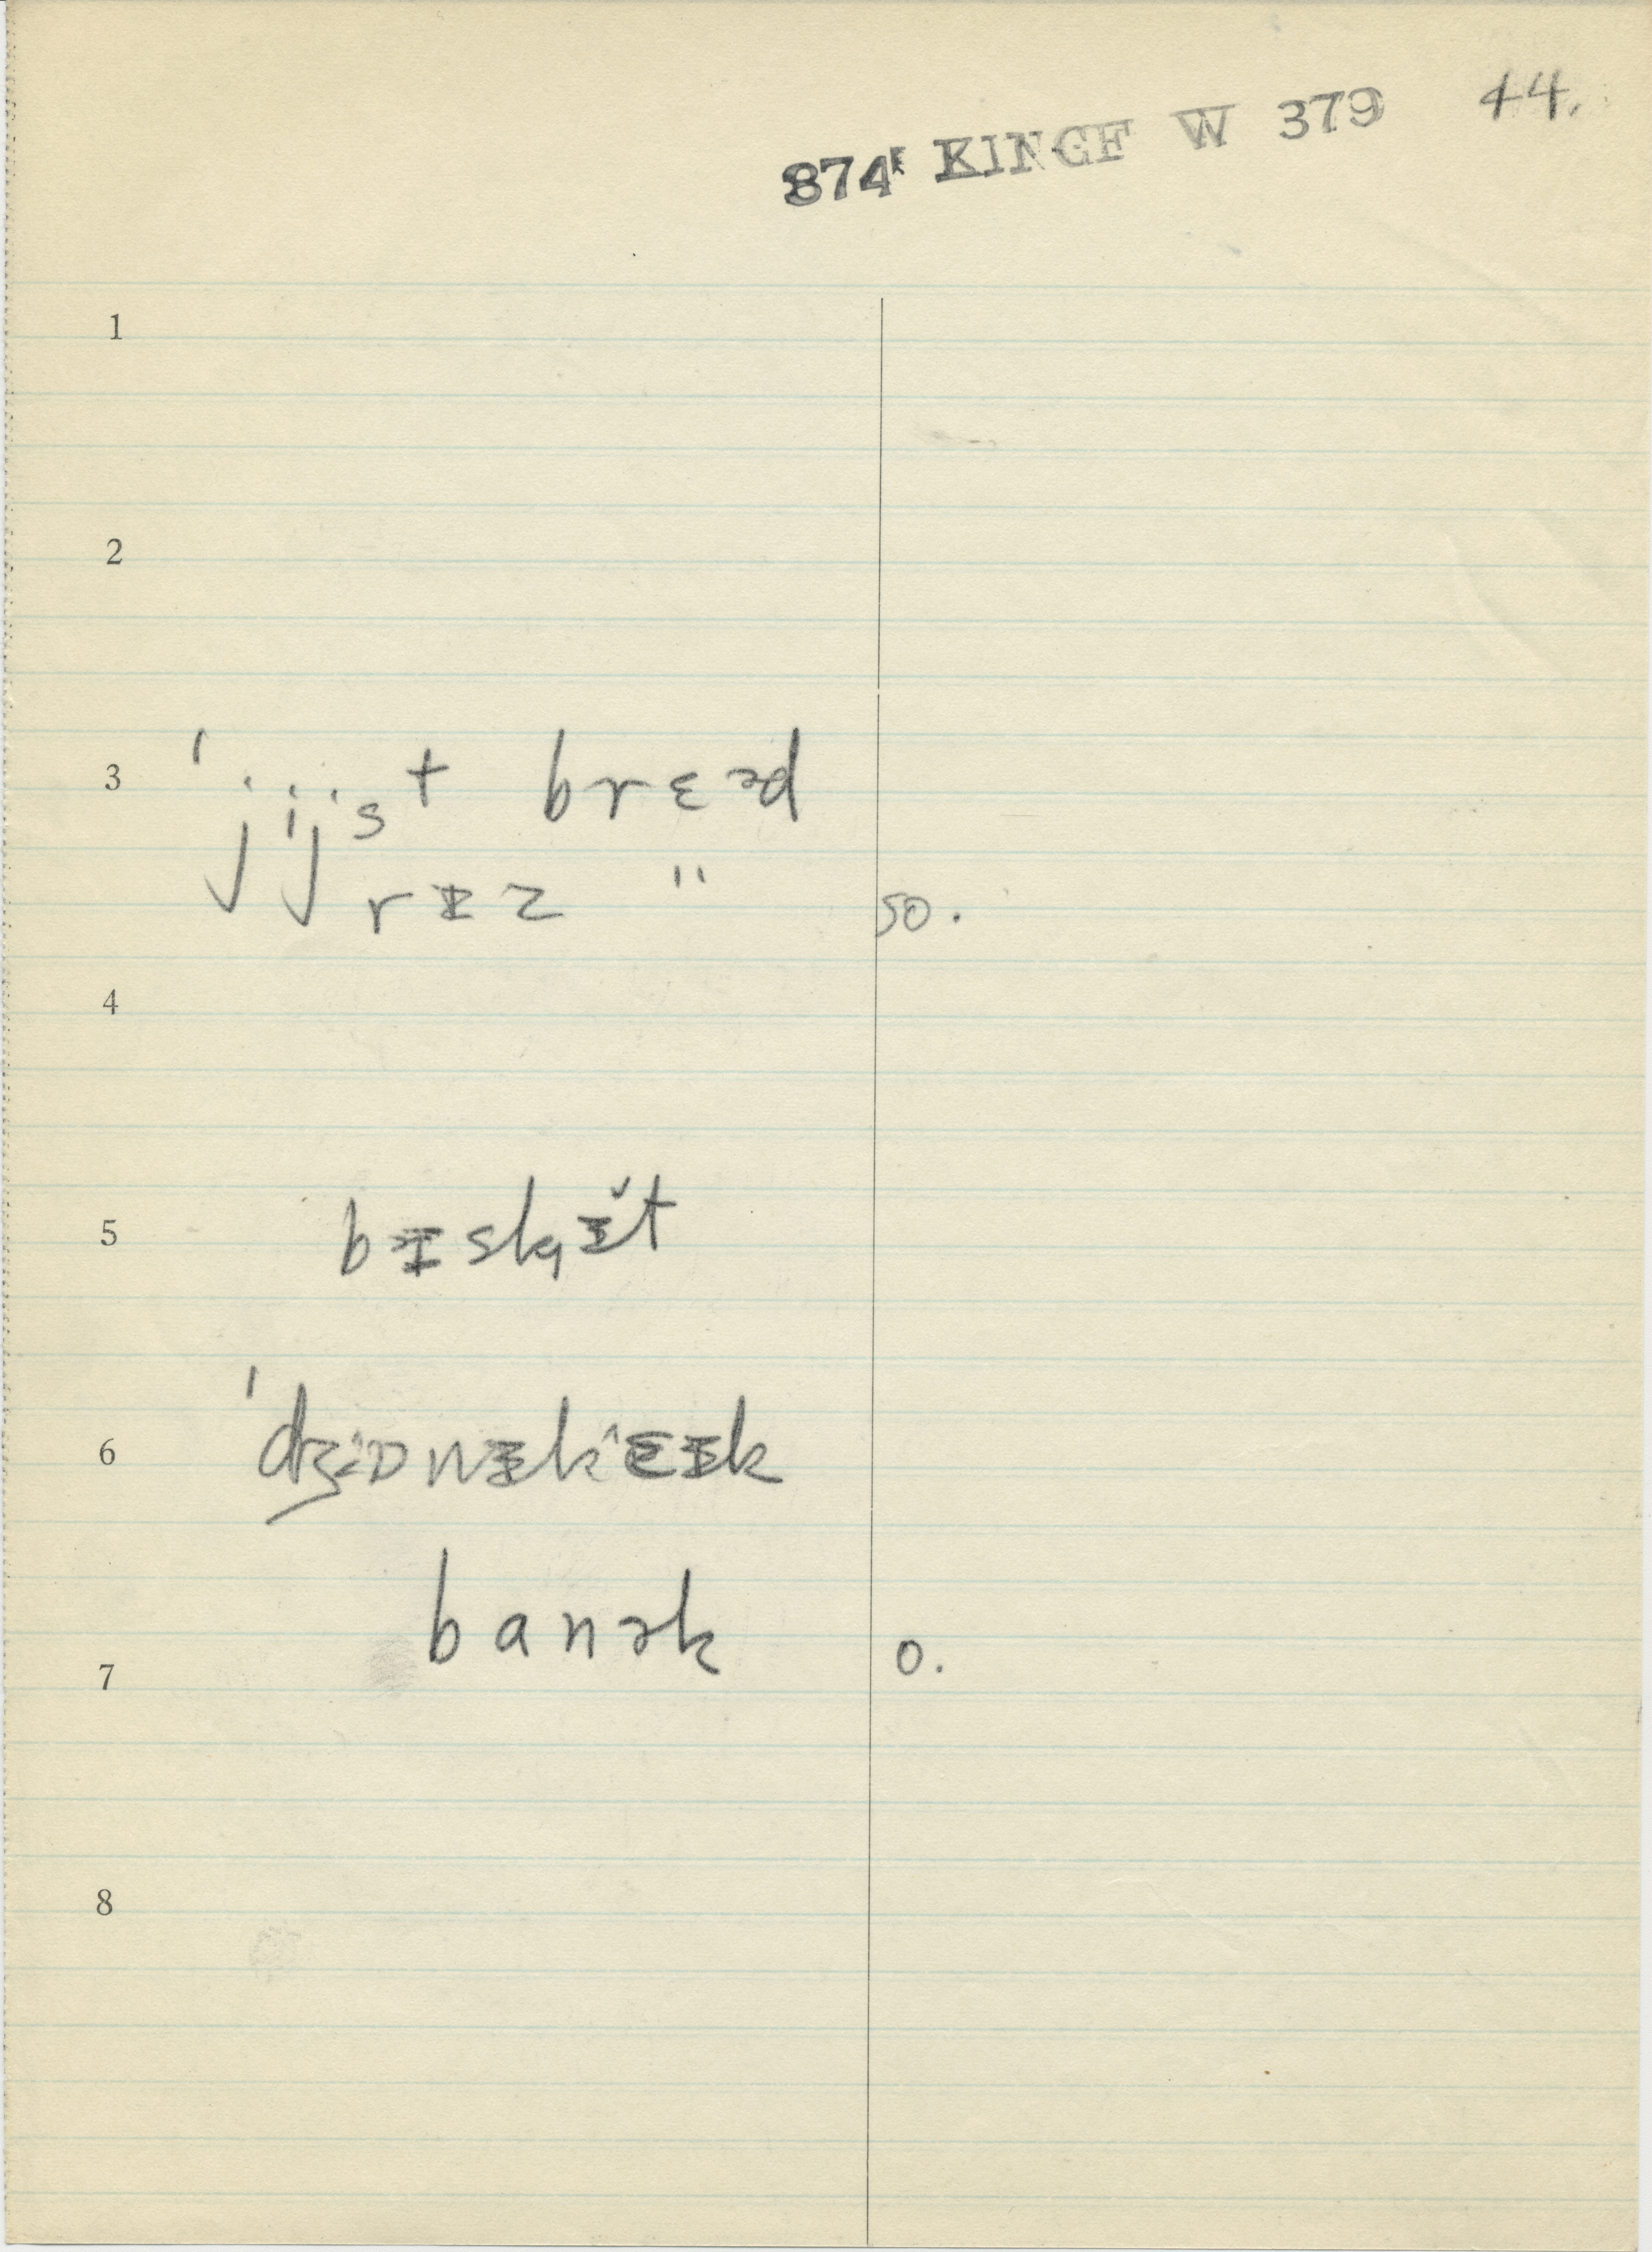 874ᴱ KINGF W 379 44.
1
2
3 ˈjijst brɛəd
rɪz " 50.
4
5 bɪskɪ̆t
6 ˈdʒɒnɪkɛɪk
banək 0.
7
8